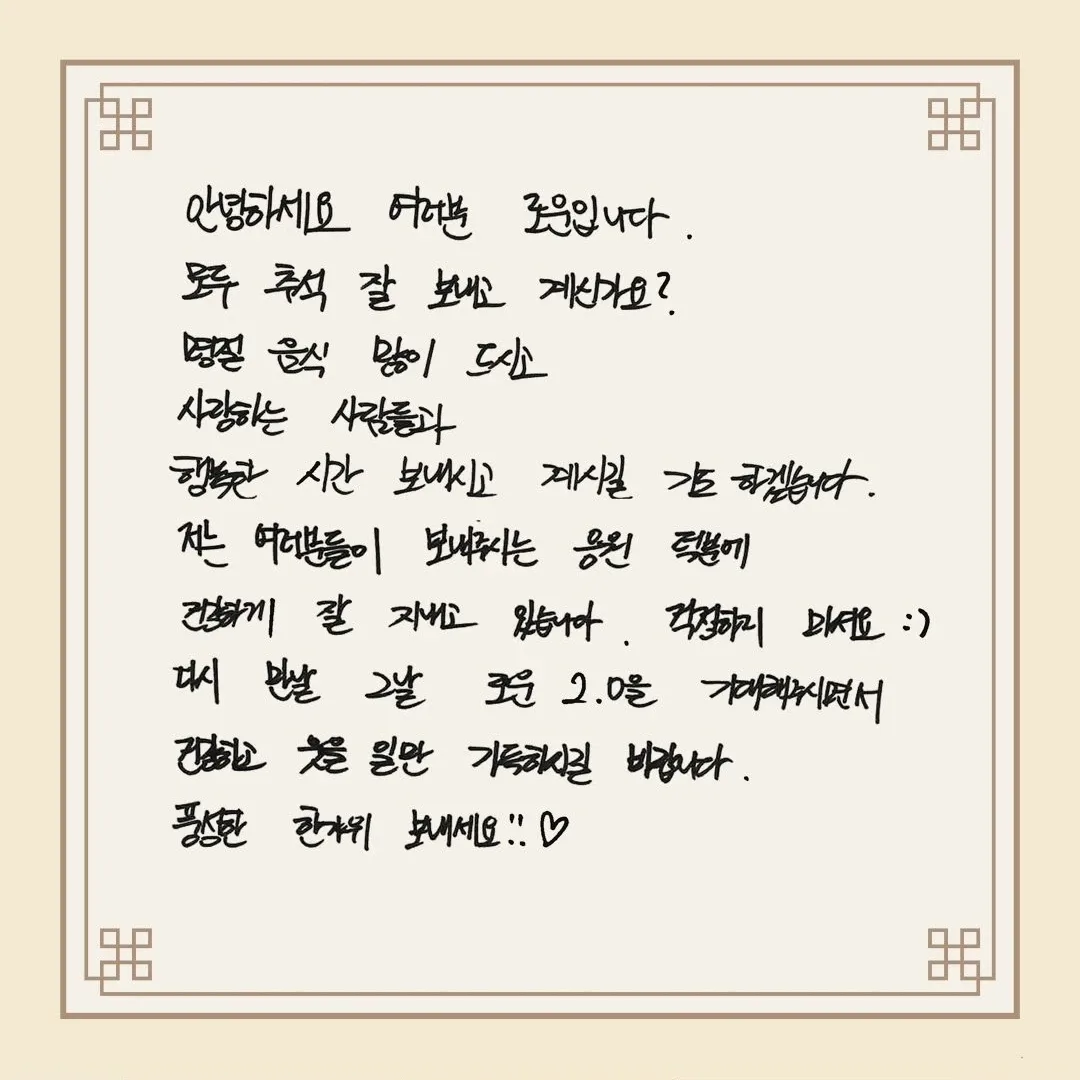 안녕하세요 여러분 로운입니다.
모두 추석 잘 보내고 계신가요?
명절 음식 많이 드시고
사랑하는 사람들과
행복한 시간 보내시고 계시길 기도 하겠습니다.
저는 여러분들이 보내주시는 응원 덕분에
건강하게 잘 지내고 있습니다. 걱정하지 마세요 :)
다시 만날 그날 로운 2.0을 기대해주시면서
건강하고 웃을 일만 가득하시길 바랍니다.
풍성한 한가위 보내세요!! ♡